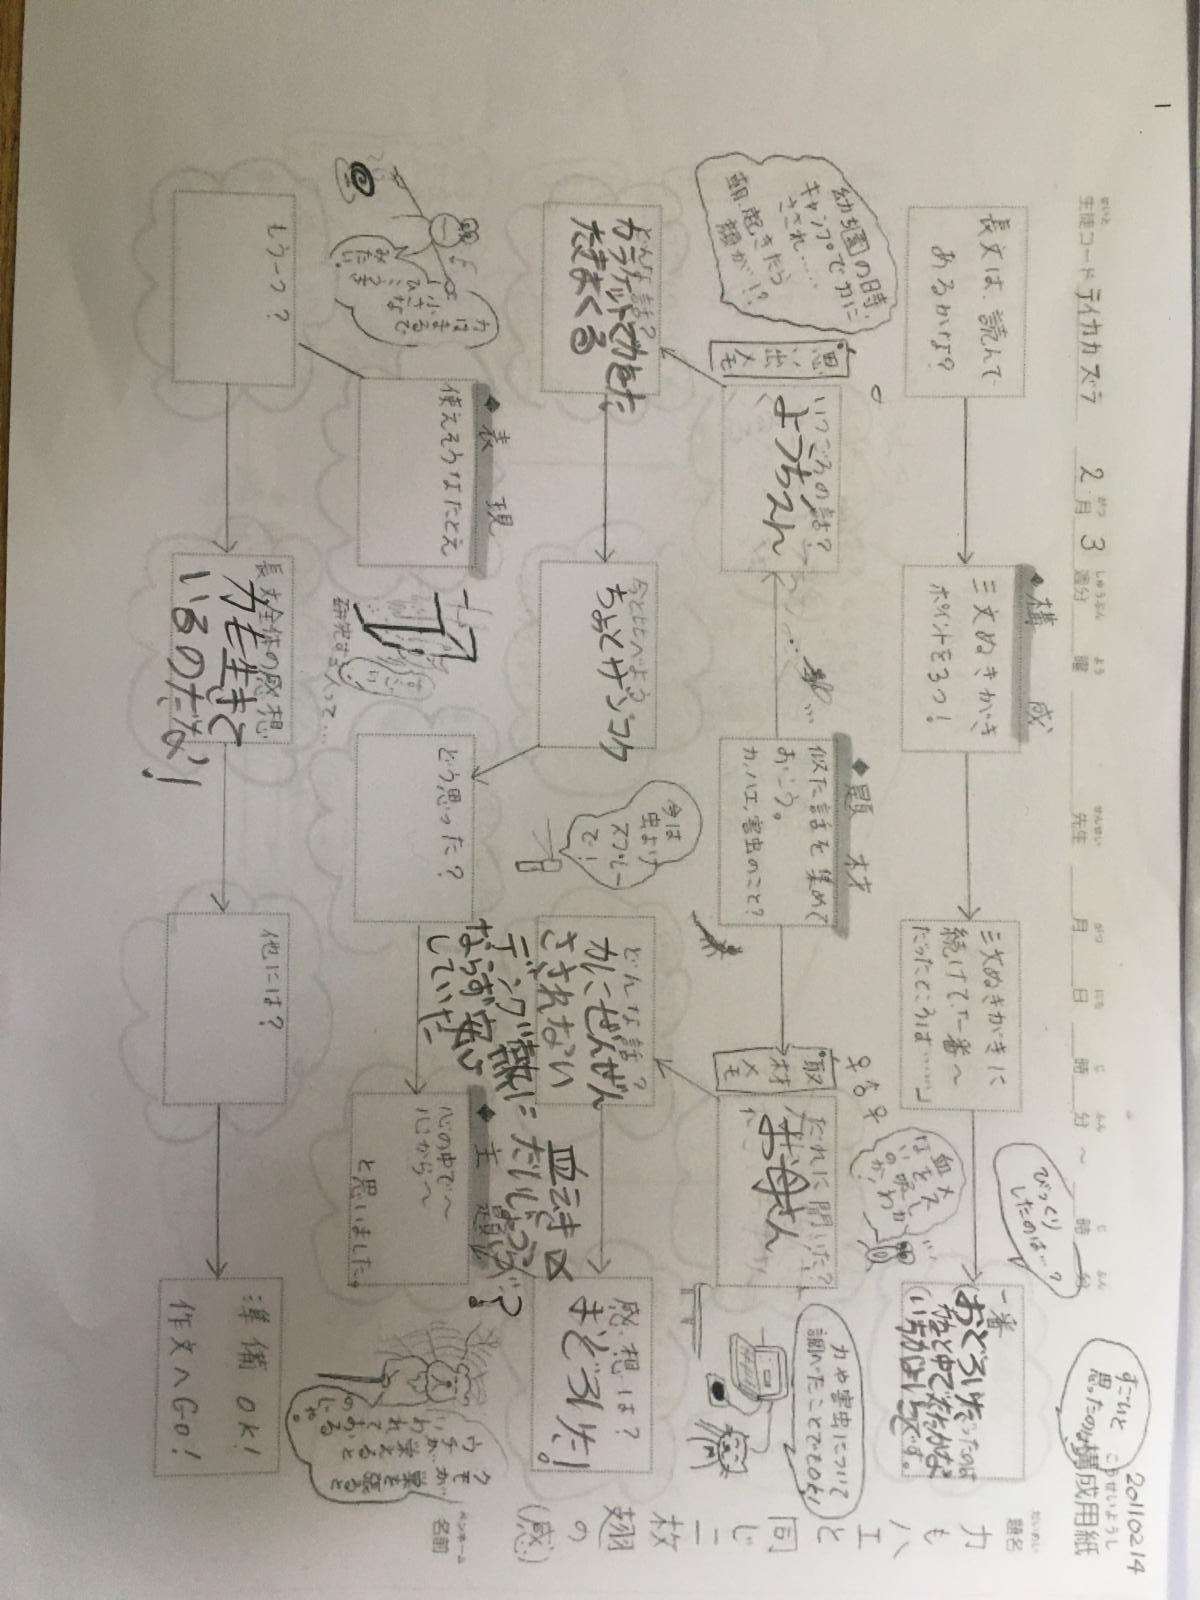 20110214
構成用紙
こうせいようし
生徒コード ティカカズラ 2月3週分 曜 先生 月 日 時 分 ～ 時 分
題名
カもハエと同じ二枚翅の(感)
ペンネーム
名前
すごいと
思ったのは
びっくり
したのは…?
長文は、読んで
あるかな?
◆構成
三文ぬきがき
ポイントを3つ!
三文ぬきがきに
続けて、「一番～
だったところは……」
一番
おどろいた
幼稚園の時、
キャンプでカに
さされ……
朝、起きたら
顔が!?
思い出メモ
いつごろの話?
ようちえん
◆題材
似た話を集めて
おこう。
カ、ハエ、害虫のこと?
取材メモ
だれに聞いた?
お母さん
メスは
血を吸
カや害虫について
調べたことでもOK!
どんな話?
カラケットでカをた
たきまくる
今とくらべよう
ちょっとザンコク
今は
虫よけ
スプレー
で!
どんな話?
カにぜんぜん
さされない
デング熱に
ならず安心
していた
血えき
だいじょうぶ
か?
感想は?
おどろいた!。
カは
まるで
小さな
ひこうき
みたい。
◆表現
使えそうなたとえ
研究する人って…
どう思った?
◆主題
心の中で～
心から～
と思いました。
クモが…
巣を張ると
ウチが
栄えると
いわれて
おる
のじゃ。
もう一つ?
長文全体の感想
カも生きて
いるのだな!
他には?
準備OK!
作文へGO!